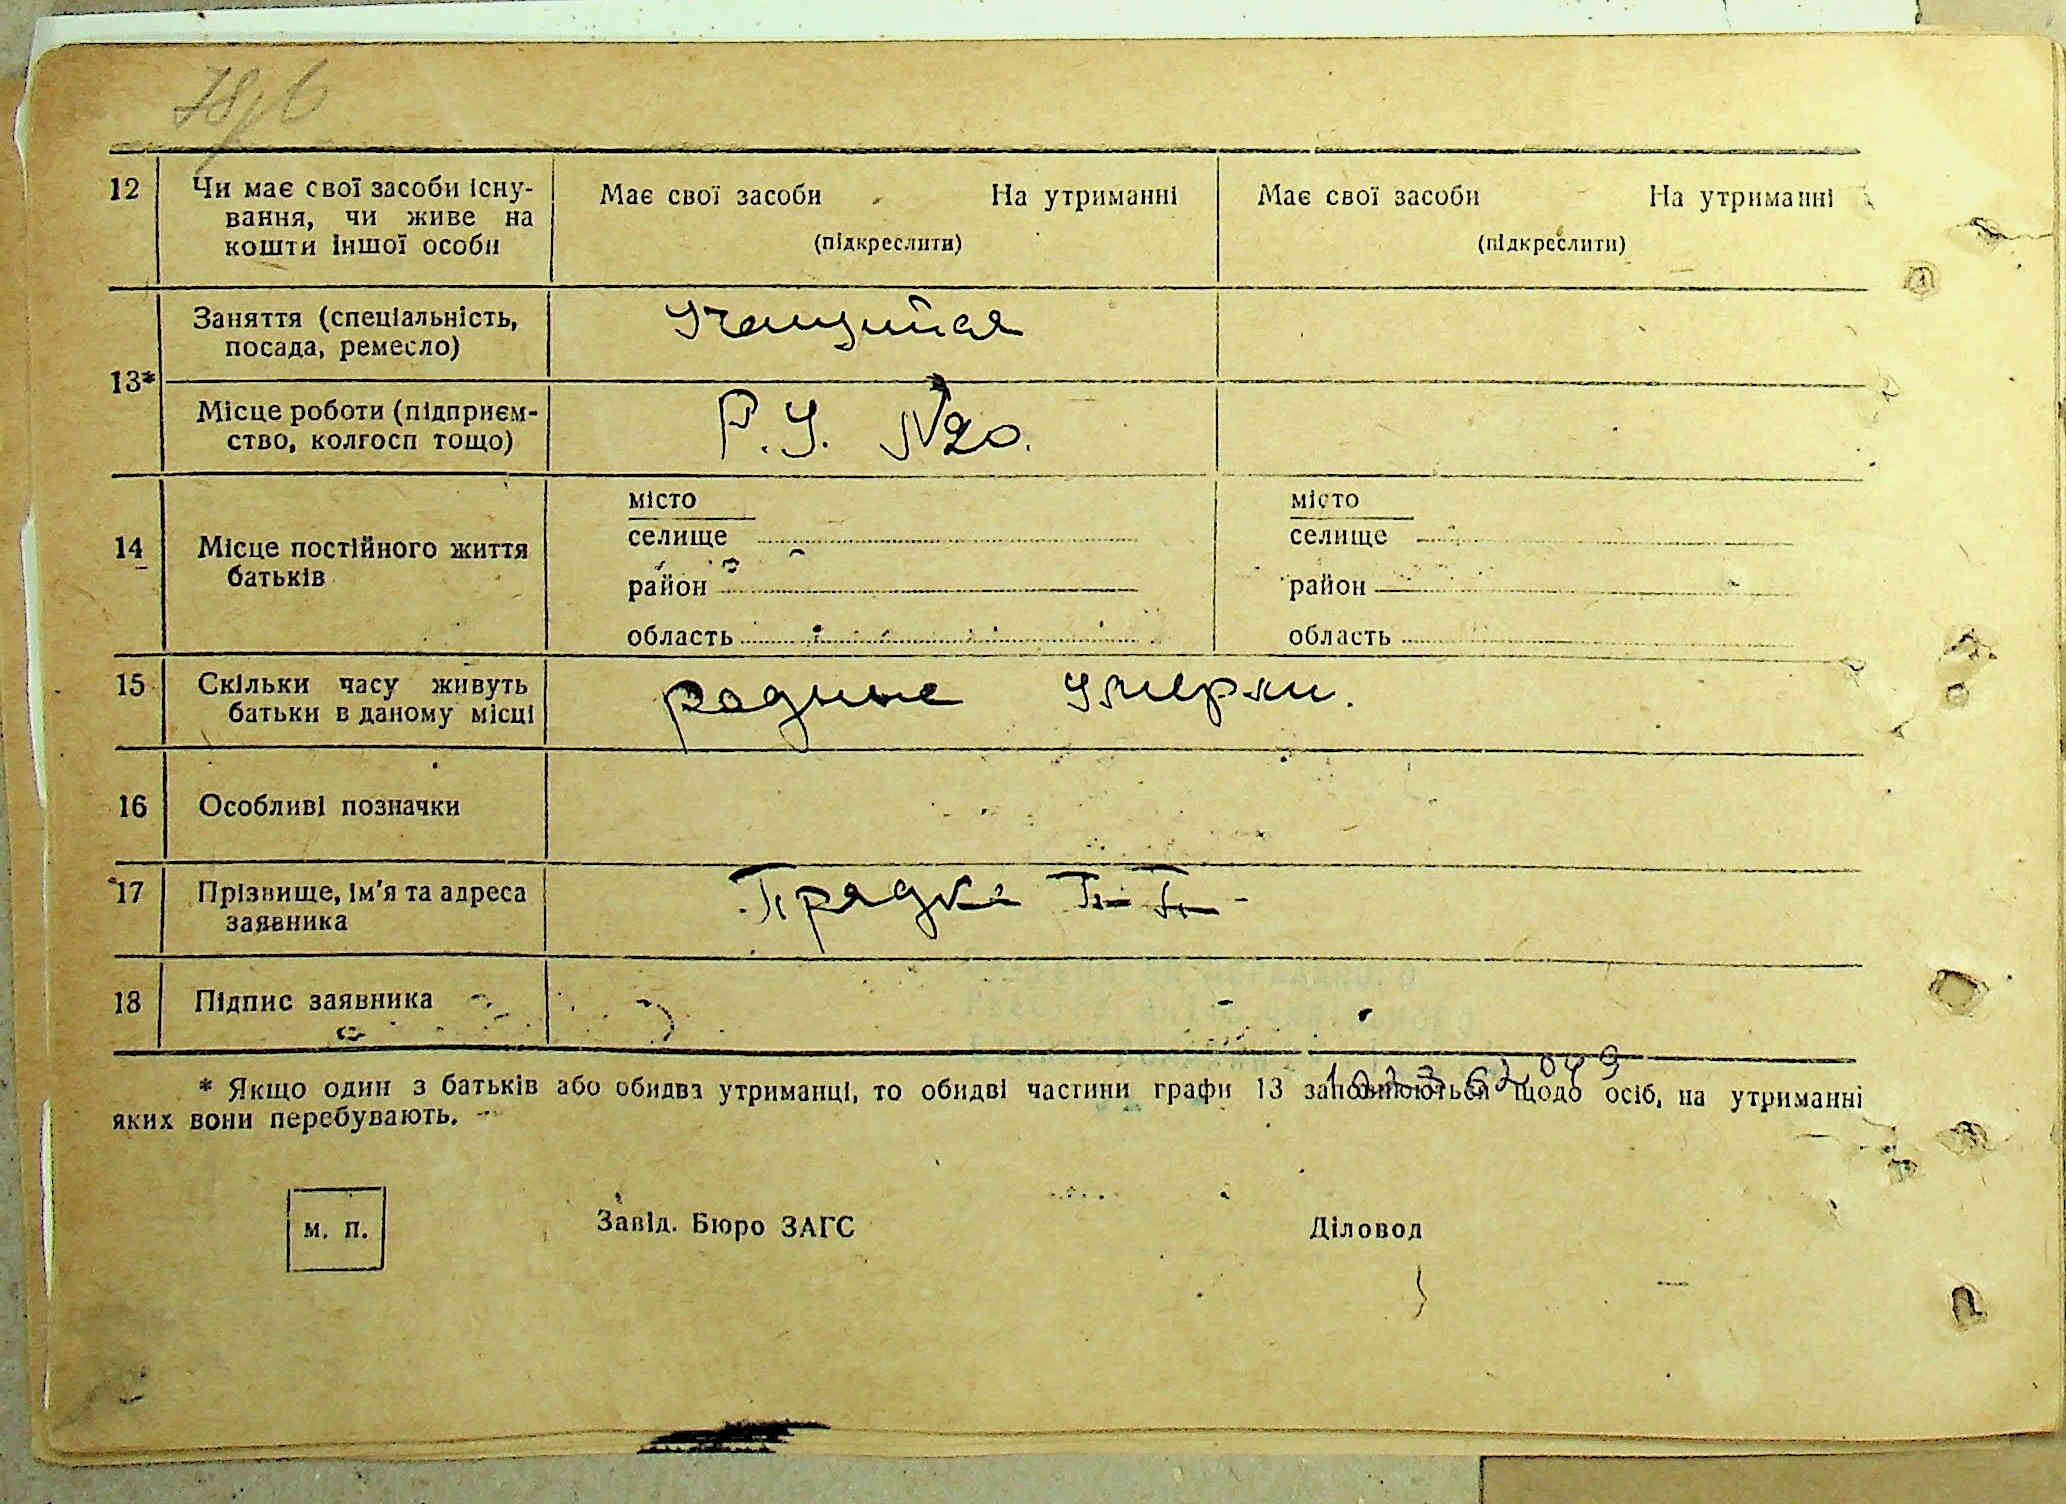 12 Чи має свої засоби існу-
вання, чи живе на
кошти іншої особи
Має свої засоби На утриманні
(підкреслити)
Має свої засоби На утриманні
(підкреслити)
13*
Заняття (спеціальність,
посада, ремесло)
Учащийся
Місце роботи (підприєм-
ство, колгосп тощо)
Р.У. №20.
14 Місце постійного життя
батьків
місто
селище
район
область
місто
селище
район
область
15 Скільки часу живуть
батьки в даному місці
родные умерли.
16 Особливі позначки
17 Прізвище, ім'я та адреса
заявника
18 Підпис заявника
* Якщо один з батьків або обидва утриманці, то обидві частини графи 13 заповнюються щодо осіб, на утриманні
яких вони перебувають.
м. п.
Завід. Бюро ЗАГС
Діловод